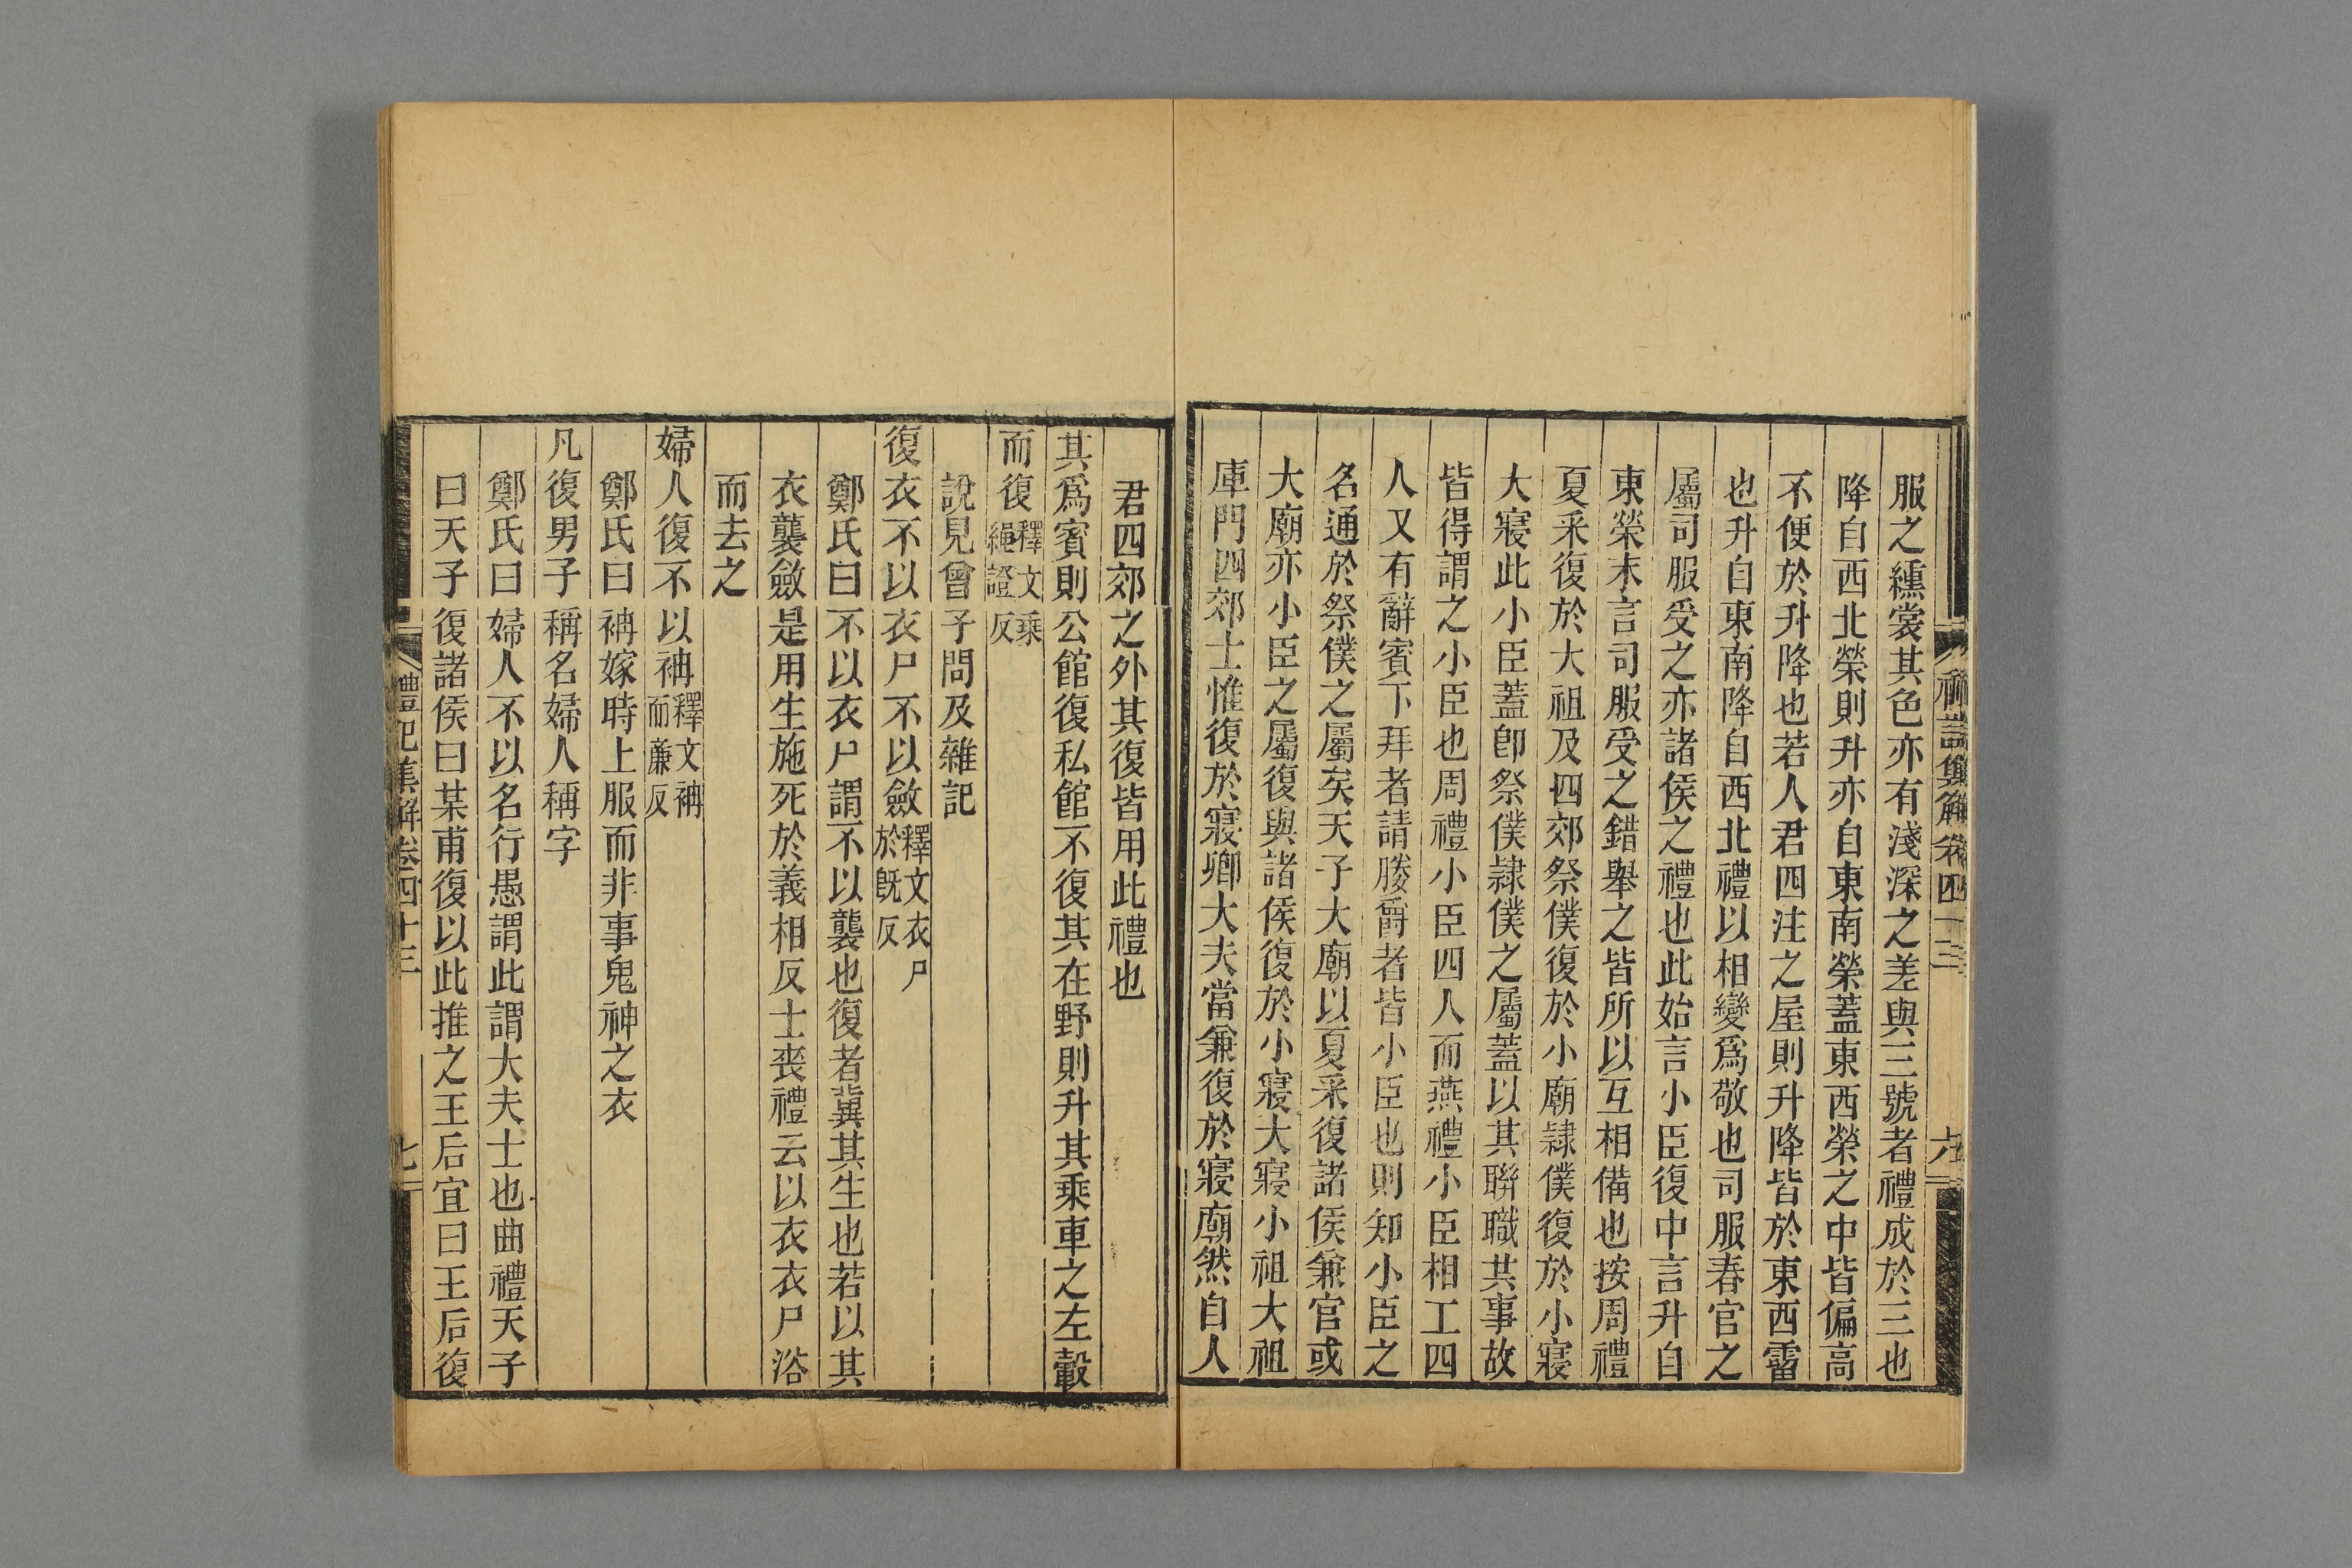 禮記集解卷四十三
六
服之纁裳其色亦有淺深之差與三號者禮成於三也
降自西北榮則升亦自東南榮蓋東西榮之中皆偏高
不便於升降也若人君四注之屋則升降皆於東西霤
也升自東南降自西北禮以相變爲敬也司服春官之
屬司服受之亦諸侯之禮也此始言小臣復中言升自
東榮末言司服受之錯舉之皆所以互相備也按周禮
夏采復於大祖及四郊祭僕復於小廟隷僕復於小寢
大寢此小臣蓋卽祭僕隷僕之屬蓋以其聯職共事故
皆得謂之小臣也周禮小臣四人而燕禮小臣相工四
人又有辭賓下拜者請媵爵者皆小臣也則知小臣之
名通於祭僕之屬矣天子大廟以夏采復諸侯兼官或
大廟亦小臣之屬復與諸侯復於小寢大寢小祖大祖
庫門四郊士惟復於寢卿大夫當兼復於寢廟然自人
君四郊之外其復皆用此禮也
其爲賓則公館復私館不復其在野則升其乘車之左轂
而復釋文乘繩證反
說見曾子問及雜記
復衣不以衣尸不以斂釋文衣尸於旣反
鄭氏曰不以衣尸謂不以襲也復者冀其生也若以其
衣襲斂是用生施死於義相反士喪禮云以衣衣尸浴
而去之
婦人復不以袡釋文袡而廉反
鄭氏曰袡嫁時上服而非事鬼神之衣
凡復男子稱名婦人稱字
鄭氏曰婦人不以名行愚謂此謂大夫士也曲禮天子
曰天子復諸侯曰某甫復以此推之王后宜曰王后復
禮記集解卷四十三
七